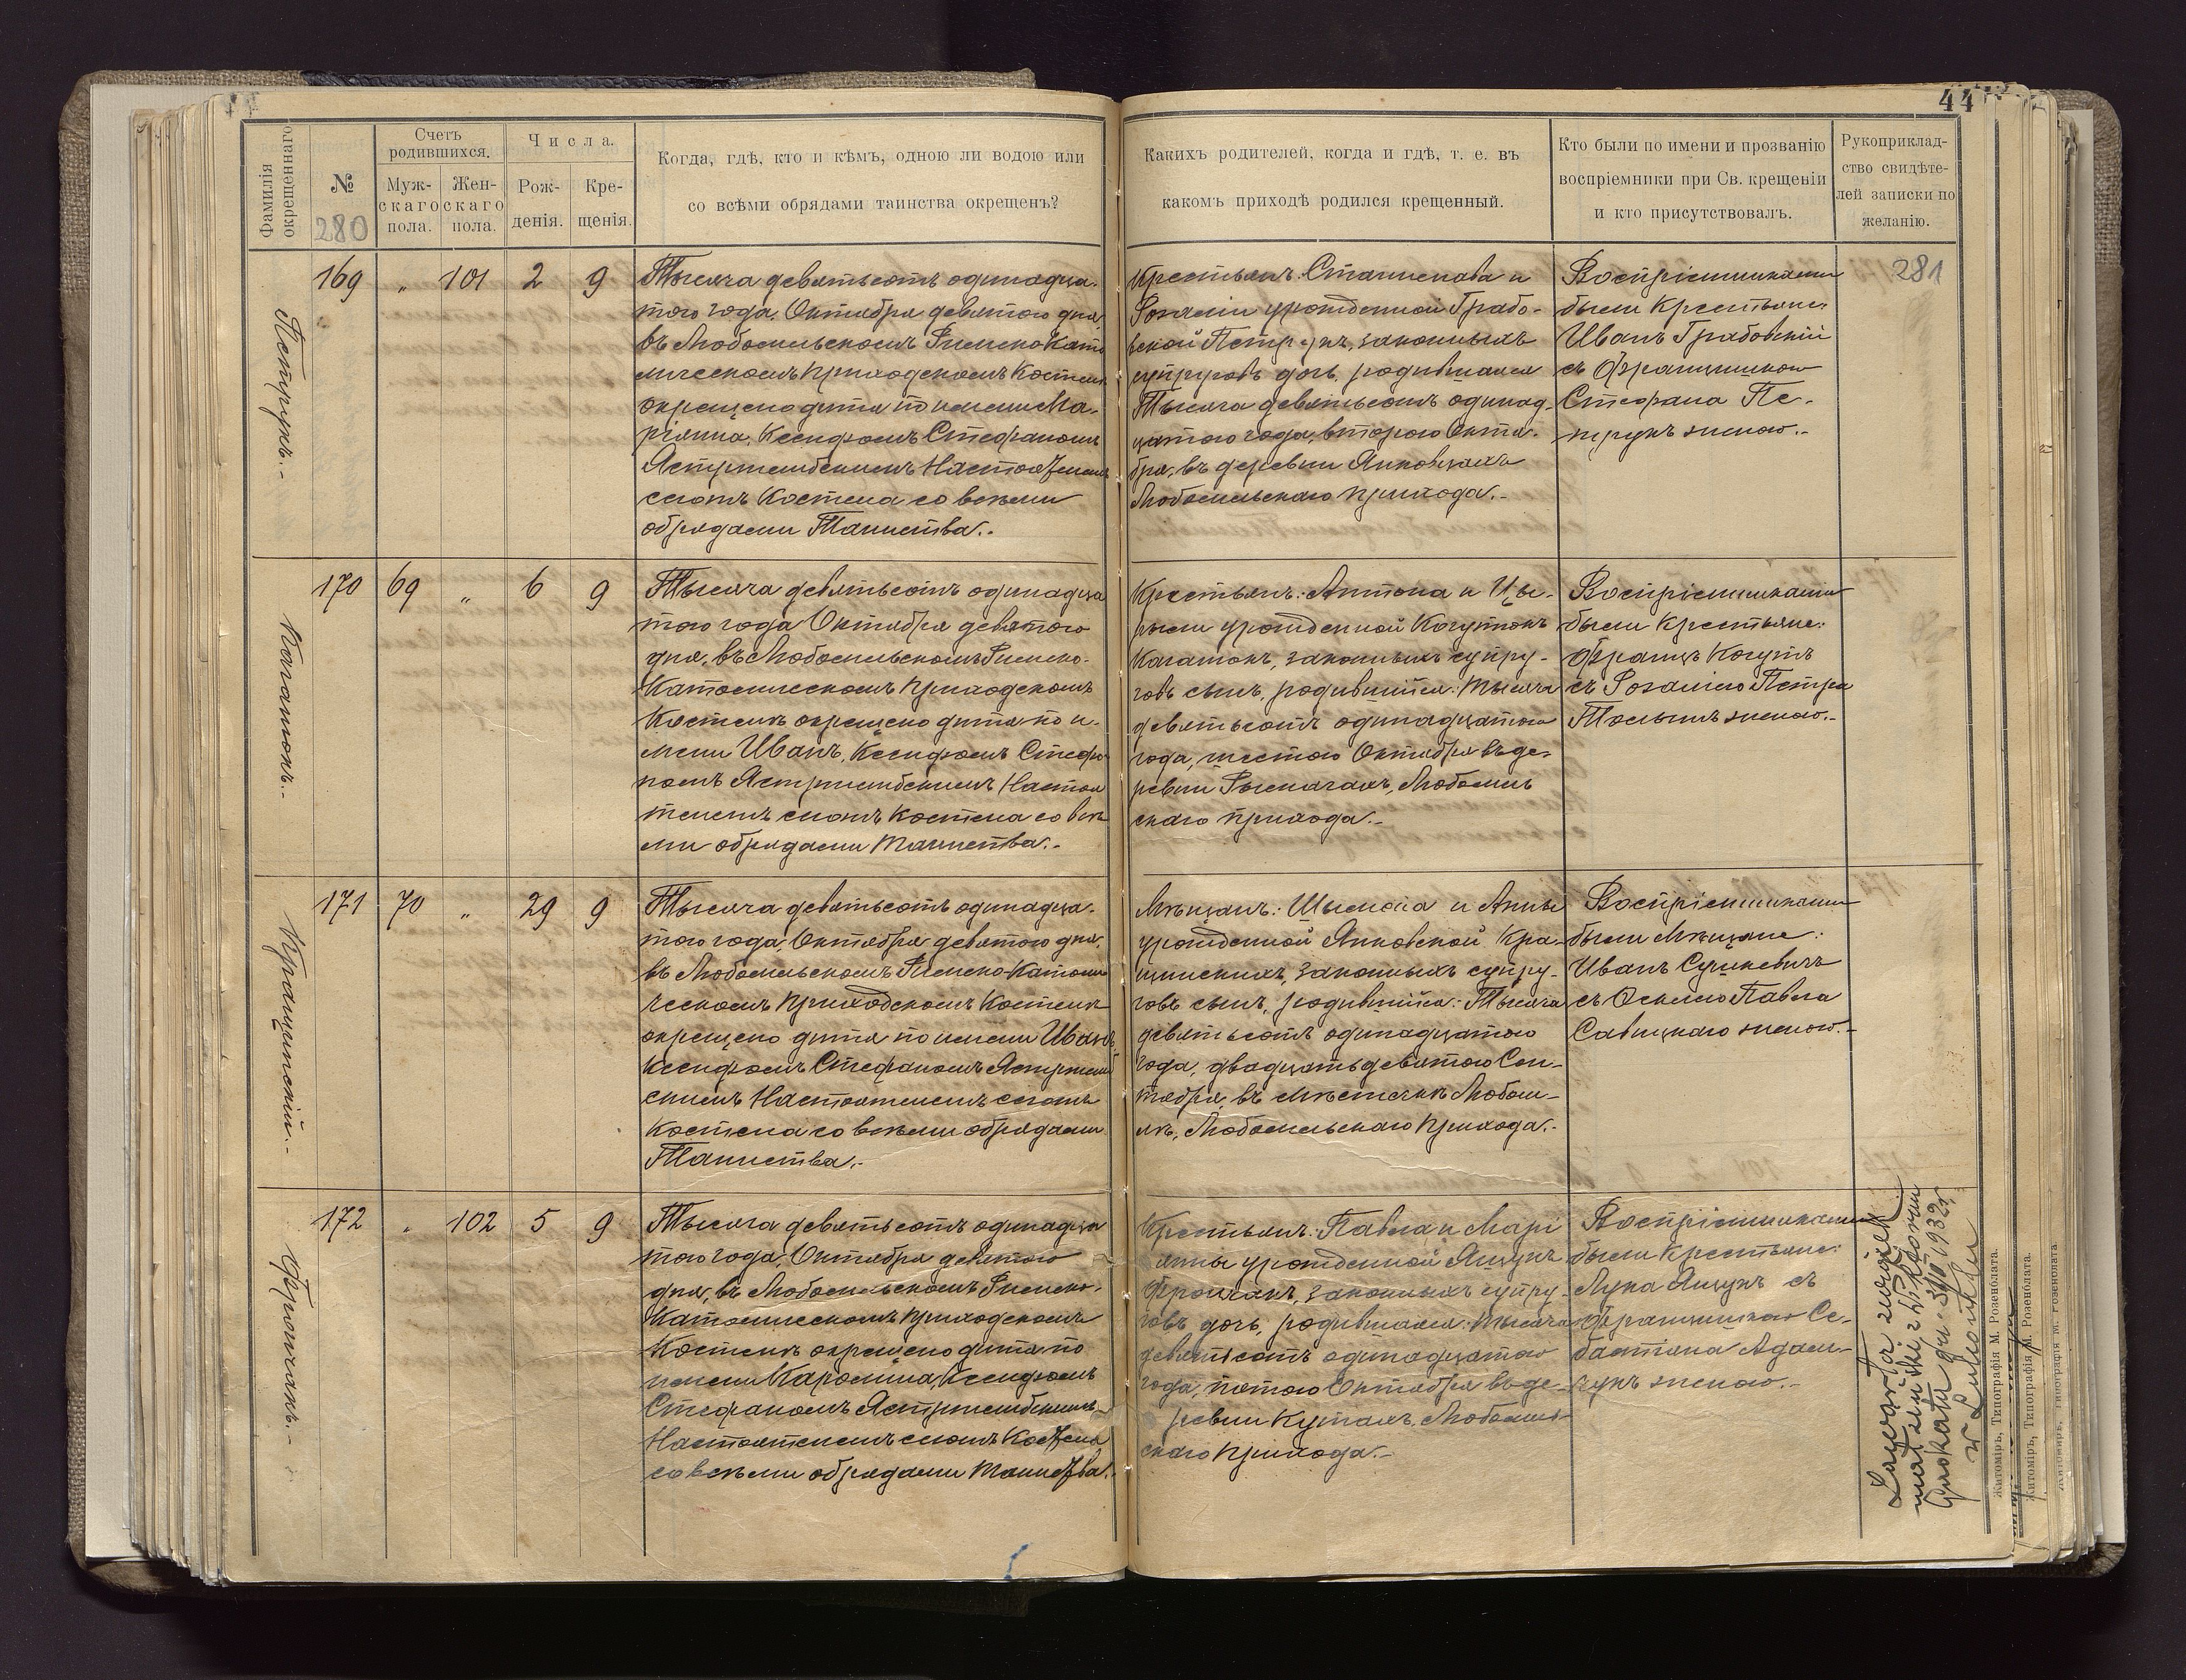 44
Фамилія окрещеннаго
№
280
Счетъ родившихся.
Мужскаго пола.
Женскаго пола.
Числа.
Рожденія.
Крещенія.
Когда, гдѣ, кто и кѣмъ, одною ли водою или
со всѣми обрядами таинства окрещенъ?
Какихъ родителей, когда и гдѣ, т. е. въ
какомъ приходѣ родился крещенный.
Кто были по имени и прозванію
воспріемники при Св. крещеніи
и кто присутствовалъ.
Рукоприклад-
ство свидѣте-
лей записки по
желанію.
281
Петрукъ.-
169 " 101 2 9
Тысяча девятьсотъ одинадца-
того года, Октября девятого дня,
въ Любомльскомъ Римско Като
лическомъ Приходскомъ Костелѣ
окрещено дитя по имени Ма-
ріянна, Ксендзомъ Стефаномъ
Ястржембскимъ Настоятелемъ
сегоже Костела со всѣми
обрядами Таинства.-
Крестьянъ: Станислава и
Розаліи урожденной Грабо-
вской Петрукъ, законныхъ
супруговъ дочь, родившаяся
Тысяча девятьсотъ одинад-
цатого года, второго Октя-
бря, въ деревни Янковцахъ
Любомльскаго Прихода.-
Воспріемниками
были Крестьяне:
Иванъ Грабовскій
съ Францишкою
Стефана Пе-
трукъ женою.-
Когатюкъ.-
170 69 " 6 9
Тысяча девятьсотъ одинадца
того года Октября девятого
дня, въ Любомльскомъ Римско-
Католическомъ Приходскомъ
Костелѣ окрещено дитя по и-
мени Иванъ, Ксендзомъ Стефа
номъ Ястржембскимъ Настоя
телемъ сегоже Костела со всѣ
ми обрядами Таинства.-
Крестьянъ: Антона и
урожденной
законныхъ супру-
говъ сынъ, родившійся: Тысяча
девятьсотъ одинадцатого
года, шестого Октября въ де-
ревни Рымачахъ, Любомль
скаго Прихода.-
Воспріемниками
были Крестьяне:
Францъ Когутъ
съ Розаліею Петра
женою.-
171 70 " 29 9
Тысяча девятьсотъ одинадца-
того года, Октября девятого дня,
въ Любомльскомъ Римско-Католи
ческомъ Приходскомъ Костелѣ
окрещено дитя по имени Иванъ,
Ксендзомъ Стефаномъ Ястржемб
скимъ Настоятелемъ сегоже
Костела со всѣми обрядами
Таинства.-
Мѣщанъ: и Анны
урожденной Янковской
законныхъ супру-
говъ сынъ, родившійся: Тысяча
девятьсотъ одинадцатого
года, двадцать девятого Сен-
тября, въ Мѣстечкѣ Любом-
лѣ, Любомльскаго Прихода.-
Воспріемниками
были Мѣщане:
Иванъ Сушкевичъ
съ Павла
Савицкаго женою.-
172 " 102 5 9
Тысяча девятьсотъ одинадца
того года, Октября девятого
дня, въ Любомльскомъ Римско-
Католическомъ Приходскомъ
Костелѣ окрещено дитя по
имени Каролина, Ксендзомъ
Стефаномъ Ястржембскимъ
Настоятелемъ сегоже Костела
со всѣми обрядами Таинства.-
Крестьянъ: Павла и Марі
янны урожденной Ящукъ
законныхъ супру-
говъ дочь, родившаяся: Тысяча
девятьсотъ одинадцатого
года, пятого Октября въ де-
ревни Кутахъ, Любомль-
скаго Прихода.-
Воспріемниками
были Крестьяне:
Лука Ящукъ съ
Францишкою Се-
бастіана Адам-
чукъ женою.-
Zawarła związek
małżeński z Wiktorem
w Lubomlu
Житоміръ, Типографія М. Розенблата.
Житоміръ, Типографія М. Розенблата.
Житоміръ, Типографія М. Розенблата.